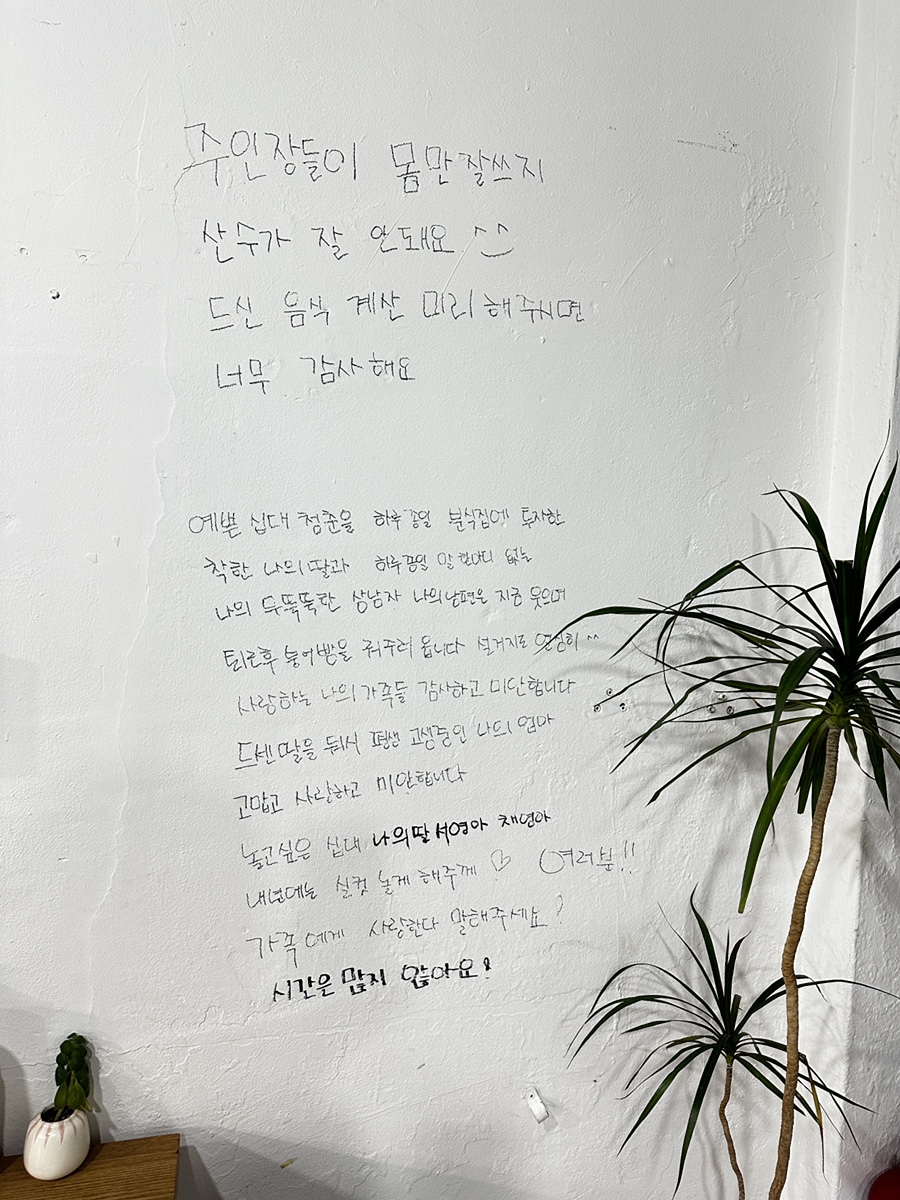 주인장들이 몸만 잘쓰지
산수가 잘 안돼요 ^^
드신 음식 계산 미리 해주시면
너무 감사해요
예쁜 십대 청춘을 하루종일 분식집에 투자한
착한 나의 딸과 하루종일 말 한마디 없는
나의 무뚝뚝한 상남자 나의 남편은 지금 웃으며
퇴근후 붕어빵을 궈주러 옵니다 설거지도 열심히 ^^
사랑하는 나의 가족들 감사하고 미안합니다
드센 딸을 둬서 평생 고생중인 나의 엄마
고맙고 사랑하고 미안합니다
놀고싶은 십대 나의딸 서영아 채연아
내년에는 실컷 놀게 해주께 ♡ 여러분!!
가족에게 사랑한다 말해주세요!
시간은 많지 않아요!